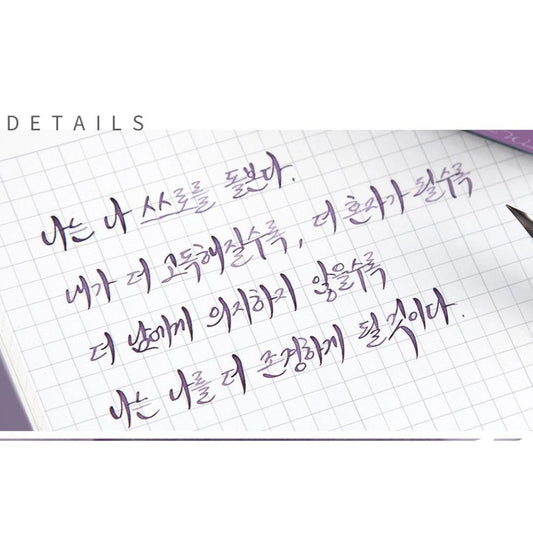 DETAILS
나는 나 스스로를 돌본다.
내가 더 고독해질수록, 더 혼자가 될수록
더 남에게 의지하지 않을수록
나는 나를 더 존경하게 될 것이다.